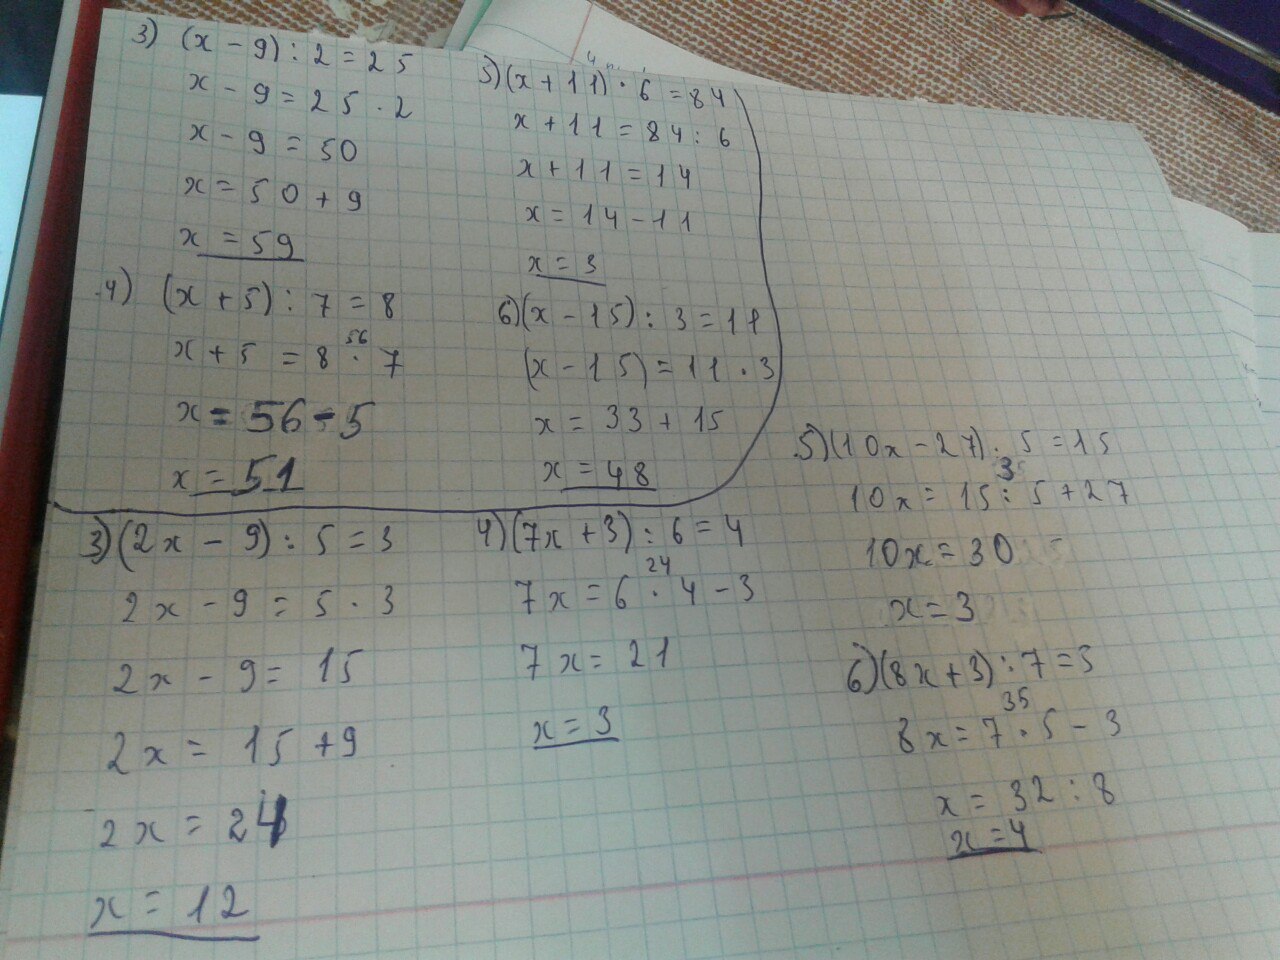 3) (x - 9) : 2 = 25
x - 9 = 25 · 2
x - 9 = 50
x = 50 + 9
x = 59
4) (x + 5) : 7 = 8
56
x + 5 = 8 · 7
x = 56 - 5
x = 51
5) (x + 11) · 6 = 84
x + 11 = 84 : 6
x + 11 = 14
x = 14 - 11
x = 3
6) (x - 15) : 3 = 11
(x - 15) = 11 · 3
x = 33 + 15
x = 48
3) (2x - 9) : 5 = 3
2x - 9 = 5 · 3
2x - 9 = 15
2x = 15 + 9
2x = 24
x = 12
4) (7x + 3) : 6 = 4
24
7x = 6 · 4 - 3
7x = 21
x = 3
5) (10x - 27) : 5 = 15
3
10x = 15 : 5 + 27
10x = 30
x = 3
6) (8x + 3) : 7 = 3
35
8x = 7 · 5 - 3
x = 32 : 8
x = 4